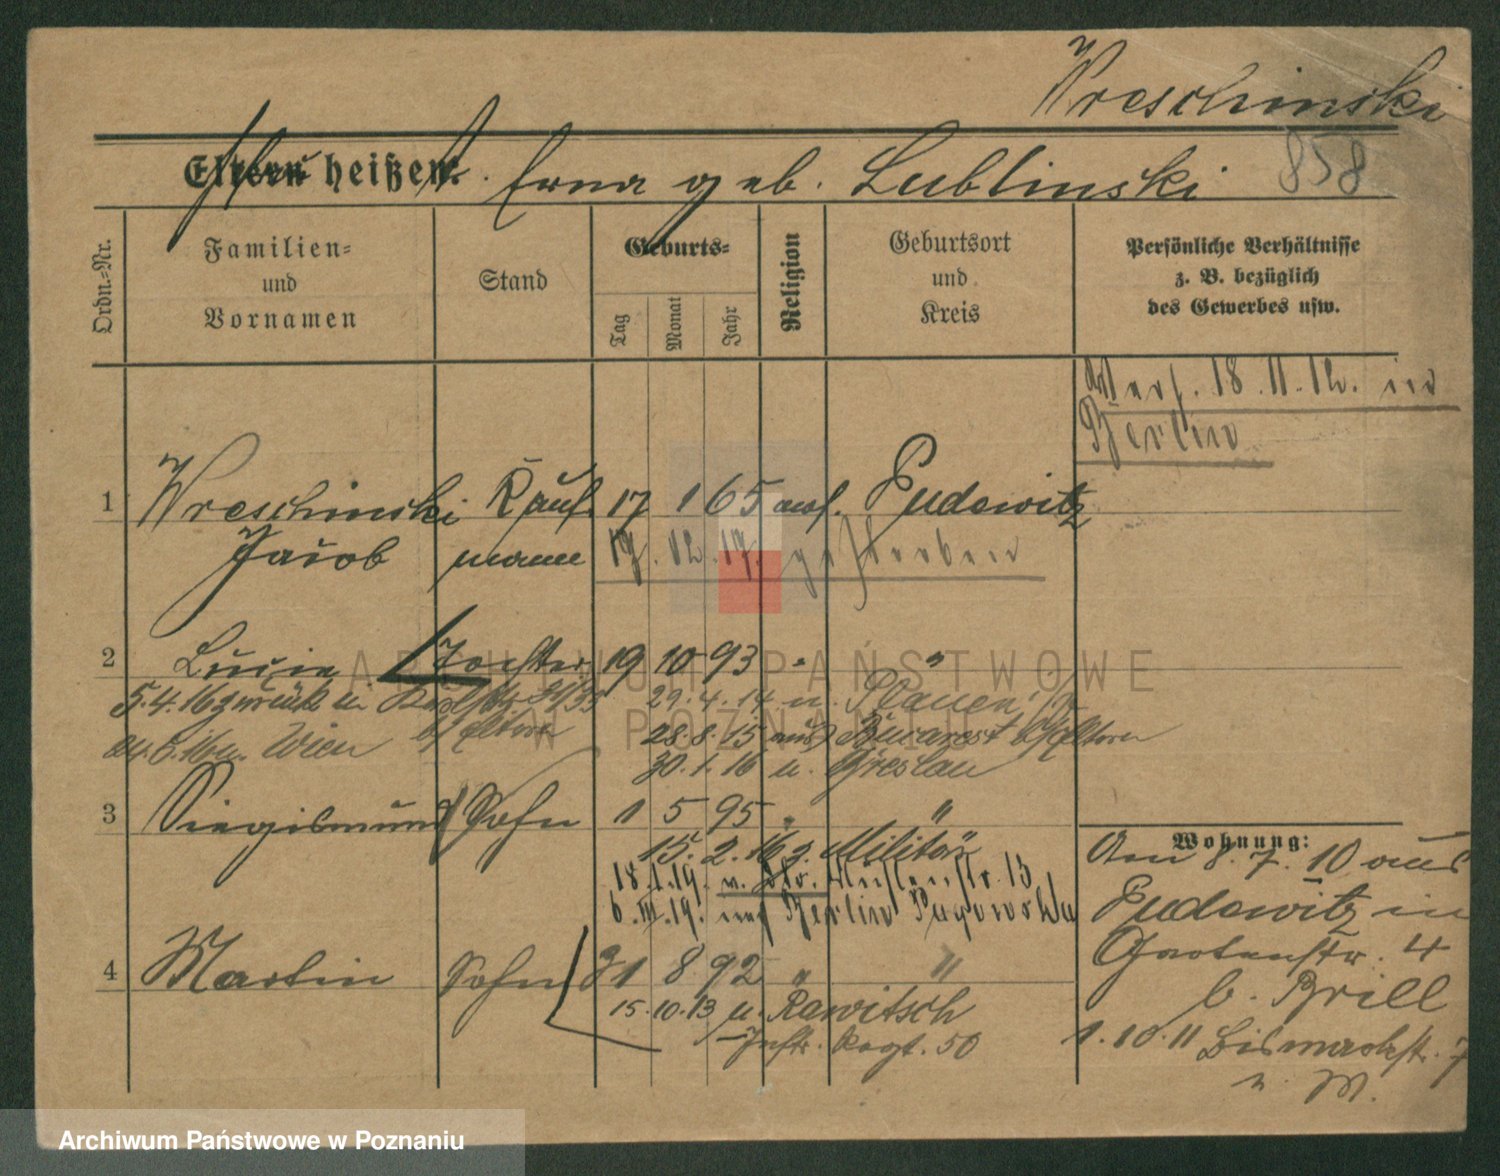 Wreschinski
858
Eltern heißen: Erna geb. Lublinski
Ordn.-Nr.
Familien-
und
Vornamen
Stand
Geburts-
Tag
Monat
Jahr
Religion
Geburtsort
und
Kreis
Persönliche Verhältnisse
z. B. bezüglich
des Gewerbes usw.
18.11.12. in
Berlin
1 Wreschinski Kauf- 17 1 65 mos. Pudewitz
Jacob mann 17.12.17. gestorben
2 Lucie Tochter 19 10 93 " "
5.4.16 zurück 29.4.14 n. Plauen
b/Eltern 28.8.15 aus Bukarest b/Eltern
Wien 30.1.16 n. Breslau
3 Siegismund Sohn 1 5 95 " "
15.2.16 z. Militär
18.1.19. v. 13
6.III.19. nach Berlin
4 Martin Sohn 31 8 92 " "
15.10.13 n. Rawitsch
Inftr. Regt. 50
Wohnung:
Am 8.7.10 aus
Pudewitz in
Gartenstr. 4
b. Brill
1.10.11 Bismarckstr. 7
n. M.
ARCHIWUM PAŃSTWOWE
W POZNANIU
Archiwum Państwowe w Poznaniu